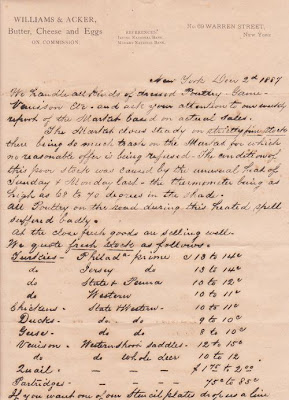 WILLIAMS & ACKER,
Butter, Cheese and Eggs
ON COMMISSION.
REFERENCES:
Irving National Bank,
National Bank.
No 69 WARREN STREET,
New York
New York Decr 2d 1887
We handle all kinds of dressed Poultry - Game -
Venison &c - and ask your attention to our weekly
report of the Market based on actual sales.
The Market closes steady on strictly fine stock
there being so much trash on the Market for which
no reasonable offer is being refused. The condition of
this poor stock was caused by the unusual heat of
Sunday & Monday last - the thermometer being as
high as 68 to 70 degrees in the shade.
All Poultry on the road during this heated spell
suffered badly.
At the close fresh goods are selling well.
We quote fresh stock as follows.
Turkies - Philada prime 13 to 14c
do Jersey do 13 to 14c
do State & Penna 10 to 12c
do Western 10 to 11c
Chickens - State & Western 10 to 11c
Ducks - do do 9 to 10c
Geese - do do 8 to 10c
Venison - Western short saddles - 12 to 15c
do do whole deer 10 to 12
Quail - $1.75 to 2.00
Partridges - 75c to 85c
If you want one of our Stencil plates drop us a line